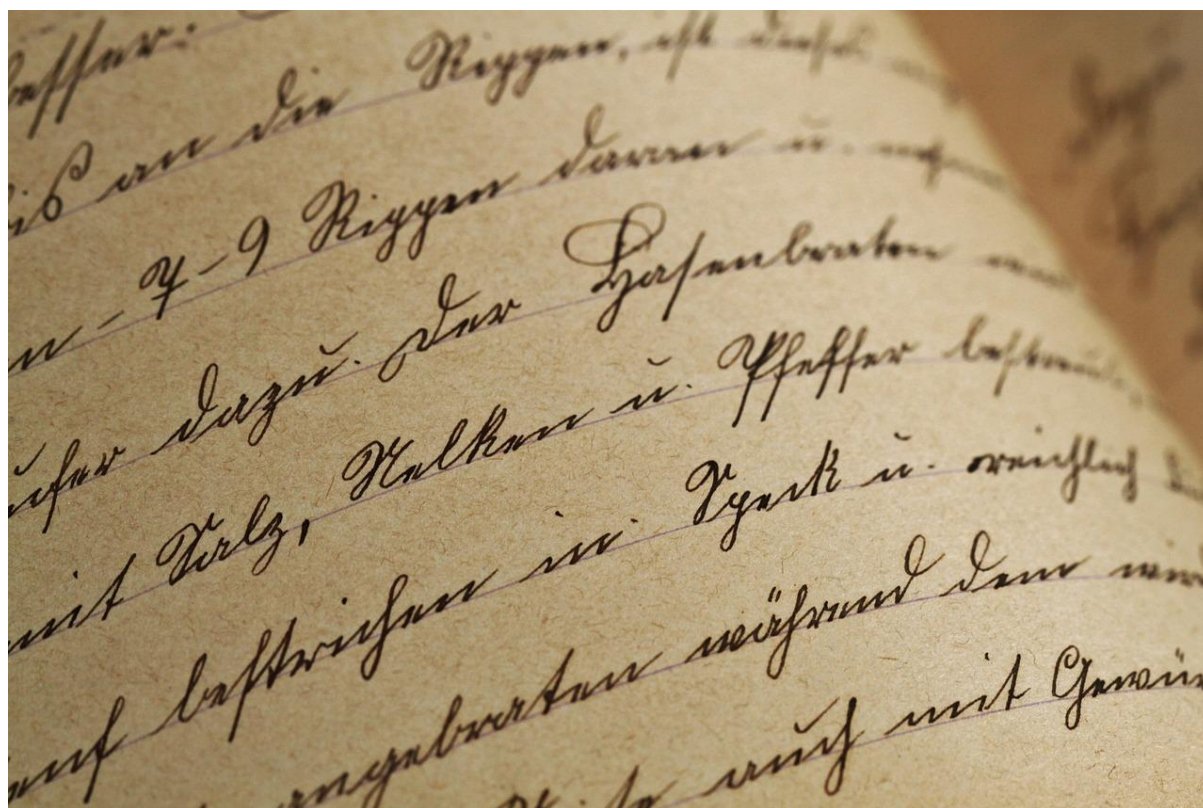 besser.
bis an die Rippen, ist dieses
7-9 Rippen daran u.
dazu. Der Hasenbraten
mit Salz, Nelken u. Pfeffer bestreut
bestrichen in Speck u. reichlich
angebraten während dem
auch mit Gewü